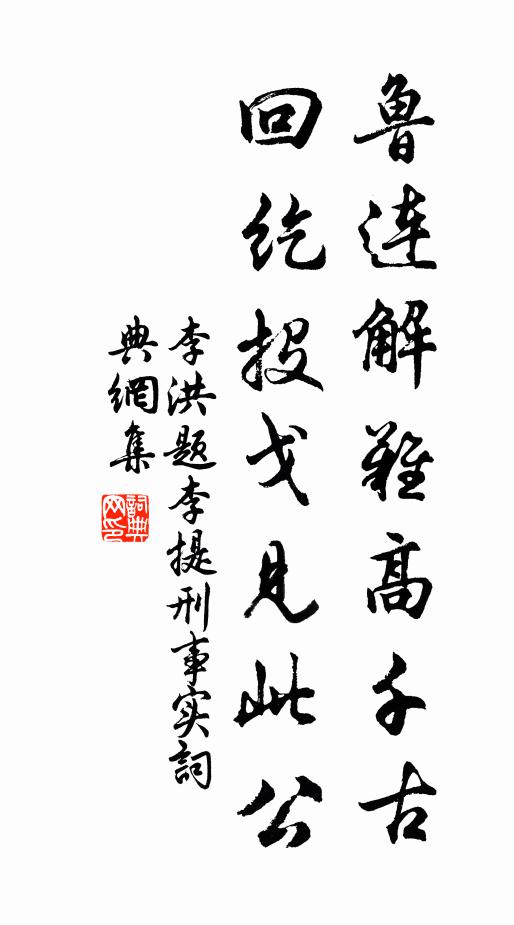 鲁连解难高千古
回纥投戈见此公
李洪题李提刑事实詞
典網集
詞典网印